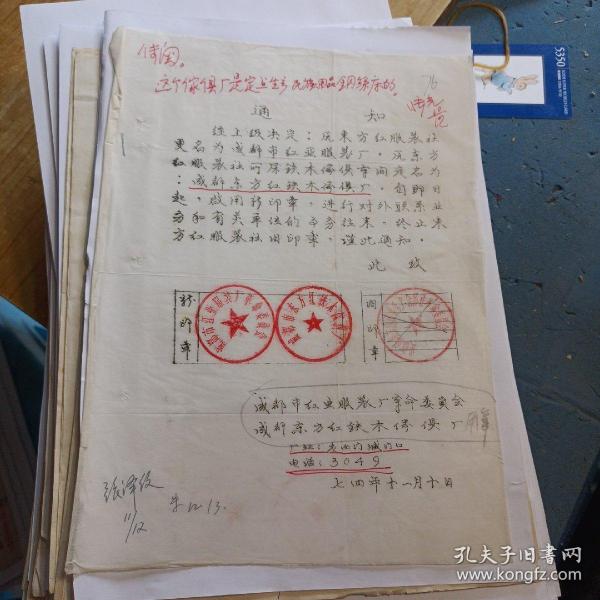 传阅。
这个傢俱厂是定点生产民族用品钢绦床的。
76
通 知
经上级决定：沅来方红服装社
更名为成都市红亚服装厂，沅东方
红服装社所属铁木傢俱车间定名为
：成都东方红铁木傢俱厂，自即日
起，啟用新印章，进行对外联系业
务和有关单位的业务往来，终止东
方红服装社旧印章，谨此通知。
此 致
新印章
旧印章
成都市红亚服装厂革命委员会
成都东方红铁木傢俱厂
厂址：老西门城门口
电话：3049
七四年十一月十日
张泽
11/12
12.13.
5350
孔夫子旧书网
www.kongfz.com